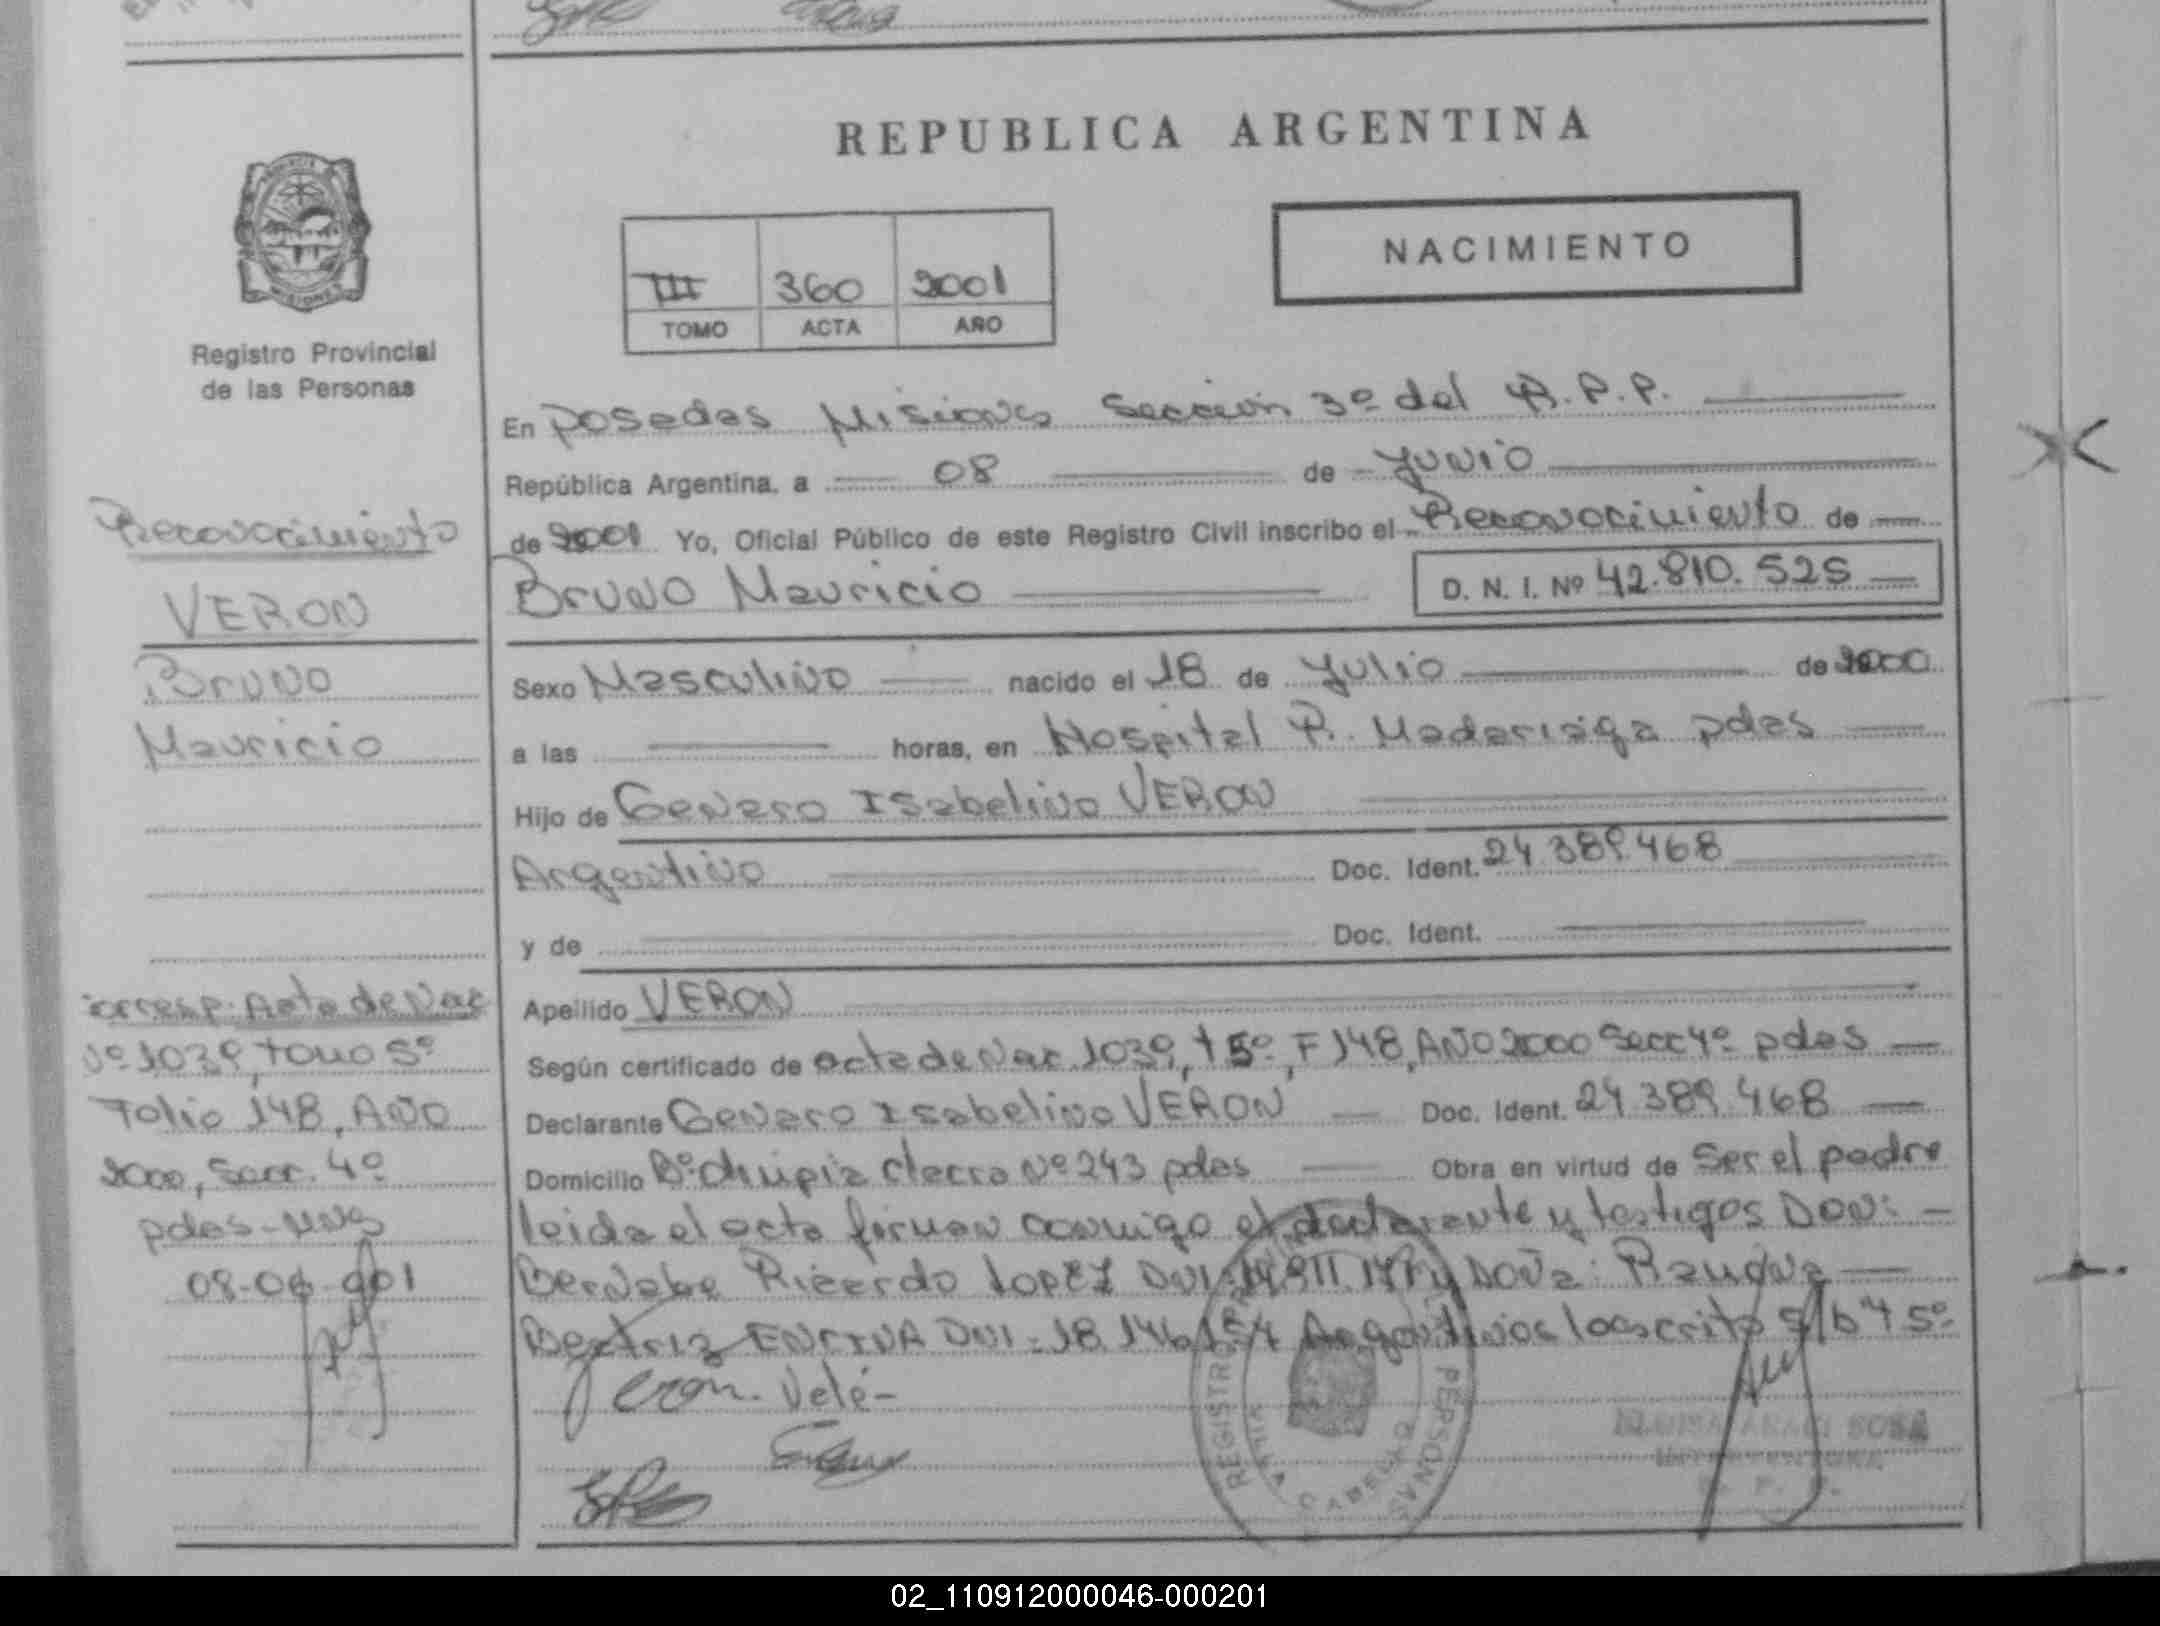 REPUBLICA ARGENTINA
NACIMIENTO
III 360 2001
TOMO ACTA AÑO
Registro Provincial
de las Personas
En Posadas Misiones Sección 3º del R.P.P.
República Argentina, a 08 de Junio
de 2001 Yo, Oficial Público de este Registro Civil inscribo el Reconocimiento de
Bruno Mauricio D. N. I. Nº 42.810.525
Sexo Masculino nacido el 18 de Julio de 2000
a las horas, en Hospital R. Madariaga pdas
Hijo de Genaro Isabelino VERON
Argentino Doc. Ident. 24.389.468
y de Doc. Ident.
Apellido VERON
Según certificado de acta de Nac. 1039, t 5º, F 148, AÑO 2000 Secc 4º pdas
Declarante Genaro Isabelino VERON Doc. Ident. 24.389.468
Domicilio Bº Chacra Nº 243 pdas Obra en virtud de Ser el padre
leida el acta firman conmigo el declarante y testigos DON:
Bernabe Ricardo LOPEZ DNI y DOÑA: Ramona
Beatriz ENCINA DNI: 18.146. Argentinos
Reconocimiento
VERON
Bruno
Mauricio
Corresp. Acta de Nac
Nº 1039, tomo 5º
Folio 148, AÑO
2000, Secc. 4º
pdas-Mns
08-06-001
REGISTRO PERSONAS
SOSA
R. P. P.
02_110912000046-000201